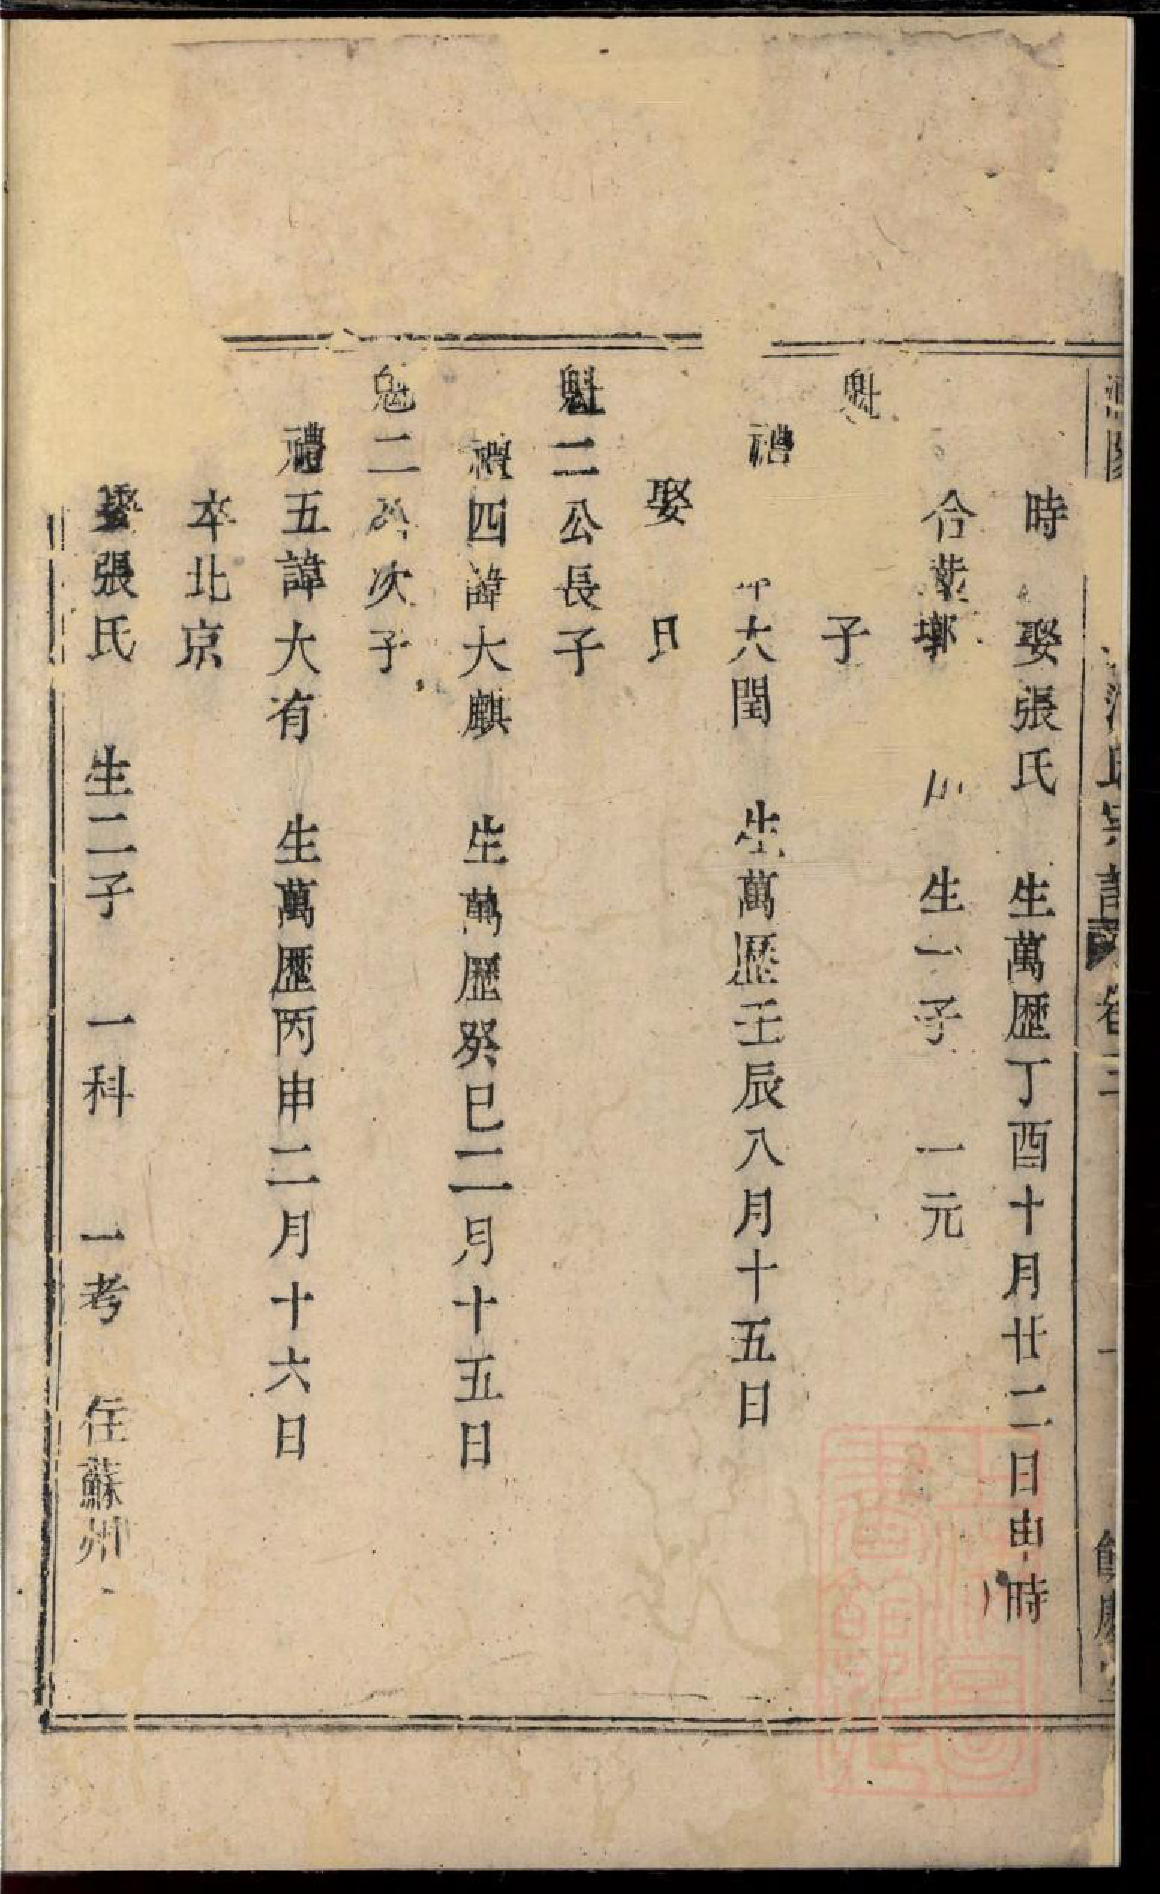 時 娶張氏 生萬歷丁酉十月廿二日申時
合葬 生一子 一元
魁 子
禮 大閏 生萬歷壬辰八月十五日
娶
魁二公長子
禮四諱大麒 生萬歷癸巳二月十五日
魁二公次子
禮五諱大有 生萬歷丙申二月十六日
卒北京
娶張氏 生二子 一科 一考 住蘇州